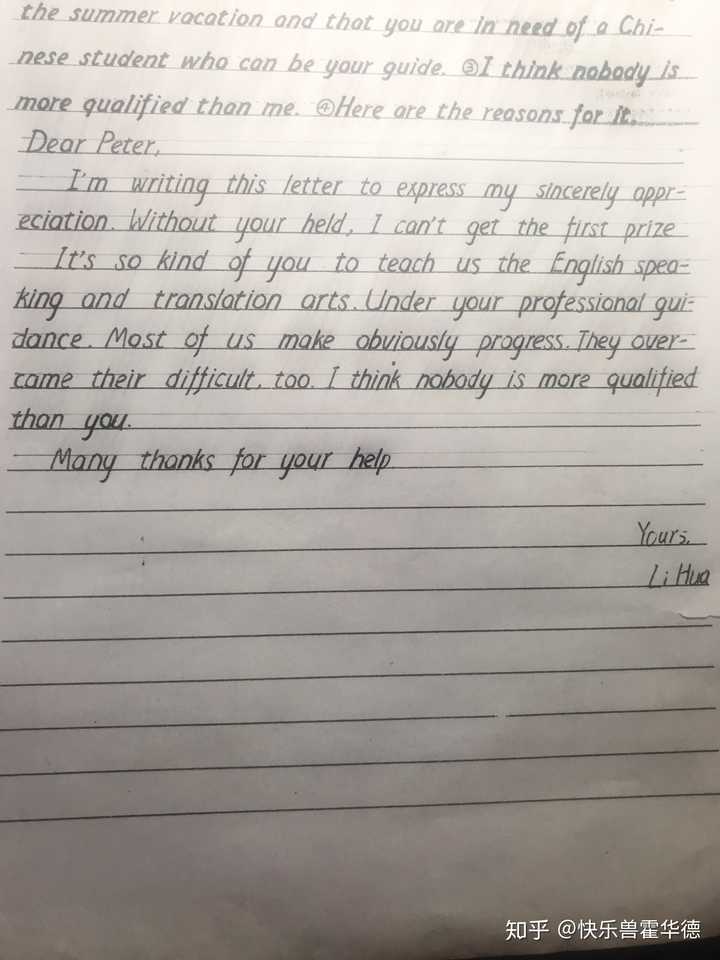 the summer vacation and that you are in need of a Chi-
nese student who can be your guide. ③I think nobody is
more qualified than me. ④Here are the reasons for it.
Dear Peter,
I'm writing this letter to express my sincerely appr-
eciation. Without your held, I can't get the first prize
It's so kind of you to teach us the English spea-
king and translation arts. Under your professional gui-
dance. Most of us make obviously progress. They over-
came their difficult, too. I think nobody is more qualified
than you.
Many thanks for your help
Yours,
Li Hua
知乎 @快乐兽霍华德